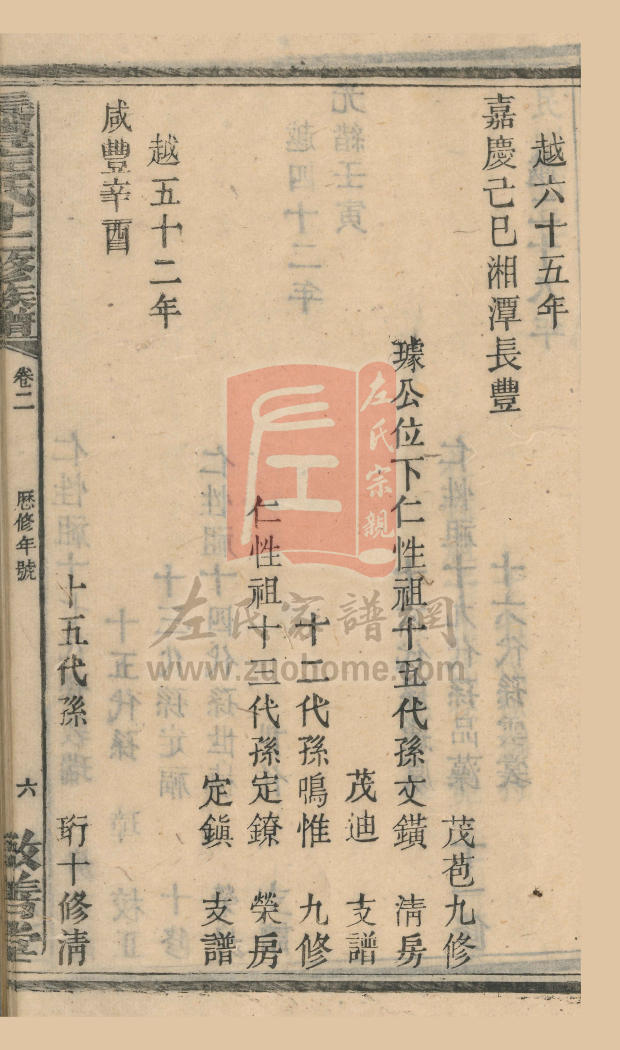 越六十五年
嘉慶己巳湘潭長豐
茂苞九修
璩公位下仁性祖十五代孫文鐄 清房
茂迪 支譜
十二代孫鳴惟 九修
仁性祖十三代孫定鐐 榮房
定鎭 支譜
越五十二年
咸豐辛酉
十五代孫 珩十修清
氏十二修族譜
卷二
歷修年號
六
敬書堂
左氏宗親
左氏家譜網
www.zuohome.com